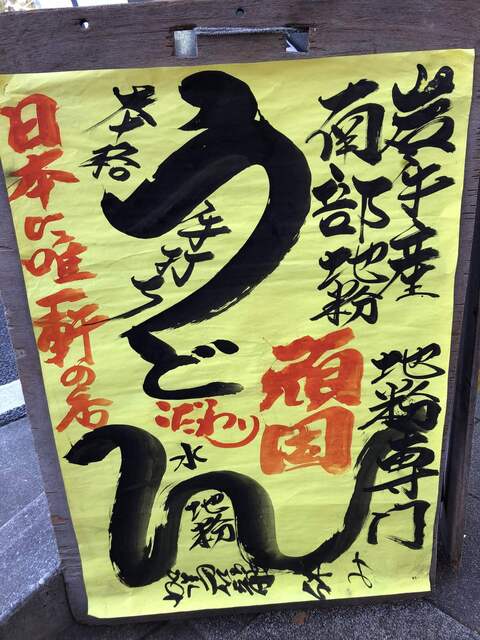 岩手産
南部地粉
地粉専門
頑固
うどん
本格
手打ち
こだわり
水
地粉
休み
日本に唯一軒の店